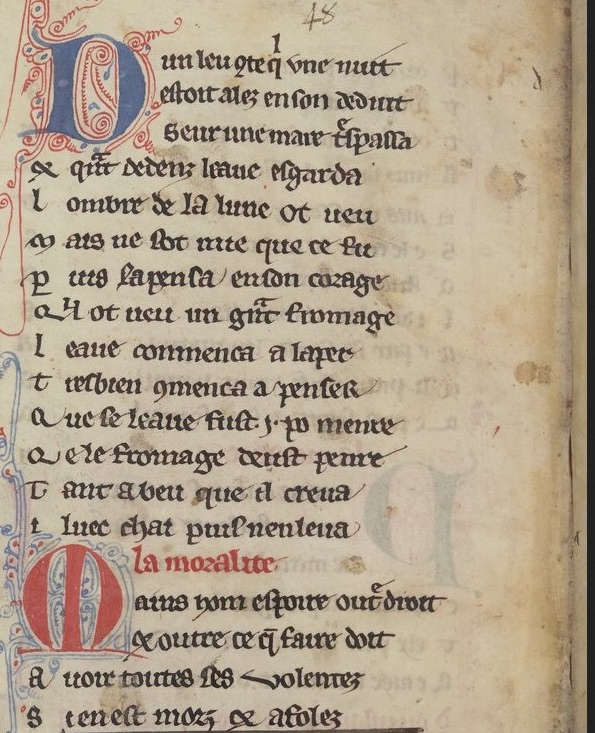 48
D un leu ꝯte q̄ vne nuit
estoit alez en son deduit
Seur une mare t̄spassa
& q̄nt dedenz leaue esgarda
l ombre de la lune ot ueu
m ais ne sot mie que ce fu
p uis sapensa en son corage
q̄l ot ueu un gr̄nt fromage
l eaue commenca a laper
t resbien ꝯmenca a penser
Q ue se leaue fust .j. po menre
Q e le fromage deust penre
T ant a beu que il creua
i luec chai puis nen leua
la moralite
M ains hom espoire out̄ droit
& outre ce q̄ faire doit
A uoir toutes ses volentez
S i en est morz & afolez